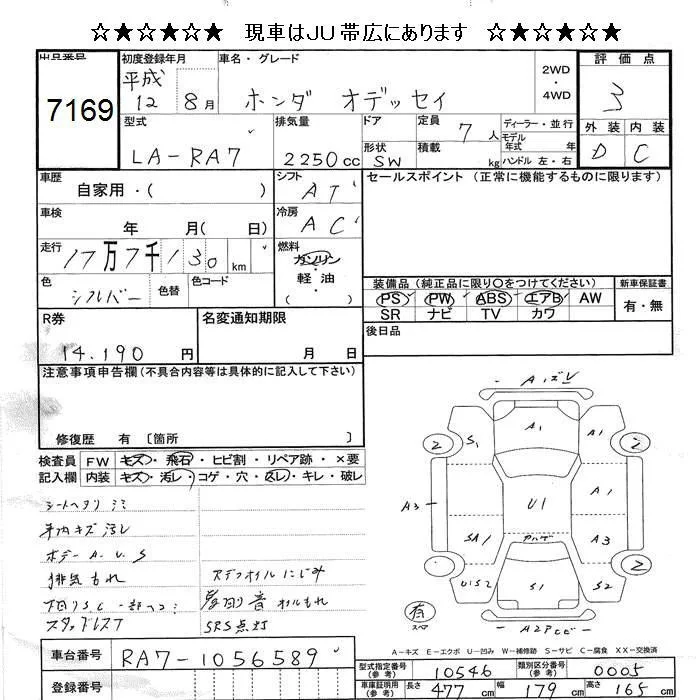 ☆★☆★☆★ 現車はJU帯広にあります ☆★☆★☆★
出品番号
7169
初度登録年月
平成
12 8月
車名・グレード
ホンダ オデッセイ
2WD
・
4WD
評価点
3
外装 内装
D C
型式
LA-RA7
排気量
2250cc
ドア
形状
SW
定員
7人
積載
kg
ディーラー・並行
モデル
年式 年
ハンドル 左・右
車歴
自家用・( )
シフト
AT
セールスポイント (正常に機能するものに限ります)
車検
年 月( 日)
冷房
AC
走行
17万7千130km
燃料
ガソリン
軽油
色
シルバー
色替
色コード
装備品 (純正品に限り○をつけてください)
PS PW ABS エアB AW
SR ナビ TV カワ
新車保証書
有・無
R券
14.190円
名変通知期限
月 日
後日品
注意事項申告欄(不具合内容等は具体的に記入して下さい)
修復歴 有 〔箇所 〕
検査員
記入欄
FW キズ・飛石・ヒビ割・リペア跡・×要
内装 キズ・汚レ・コゲ・穴・スレ・キレ・破レ
車内キズ汚レ
ボデーA.U.S
排気もれ
デフオイルにじみ
オイルもれ
SRS点灯
A1
S1
A1
2
2
A3
U1
A1
SA1
A3
U1S2
S1
S2
2
2
有
A-キズ E-エクボ U-凹み W-補修跡 S-サビ C-腐食 XX-交換済
車台番号
RA7-1056589
登録番号
型式指定番号
(参考)
10546
類別区分番号
(参考)
0005
車庫証明用
(参考)
長さ 477cm 幅 179cm 高さ 165cm